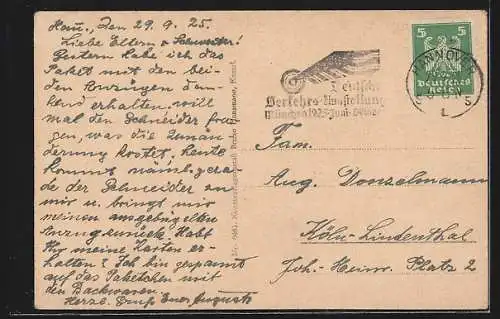 Hann., den 29. 9. 25.
Liebe Eltern u Schwester!
Gestern habe ich das
Paket mit den bei-
den Anzügen dan-
kend erhalten. will
mal den Schneider fra-
gen, was die Umän-
derung kostet. heute
kommt näml. gera-
de der Schneider zu
mir u. bringt mir
meinen ausgebügelten
Anzug zurück. Habt
Ihr meine Karten er-
halten? Ich bin gespannt
auf das Paketchen mit
den Backwaren.
Herzl. Gruß Euer August
Kunstverlagsanstalt Bruno Hansmann, Kassel.
Deutsche
Verkehrs-Ausstellung
München 1925 Juni-Oktober
5 5
Deutsches
Reich
HANNOVER
Fam.
Aug. Donselmann
Köln-Lindenthal
Joh.-Heinr. Platz 2